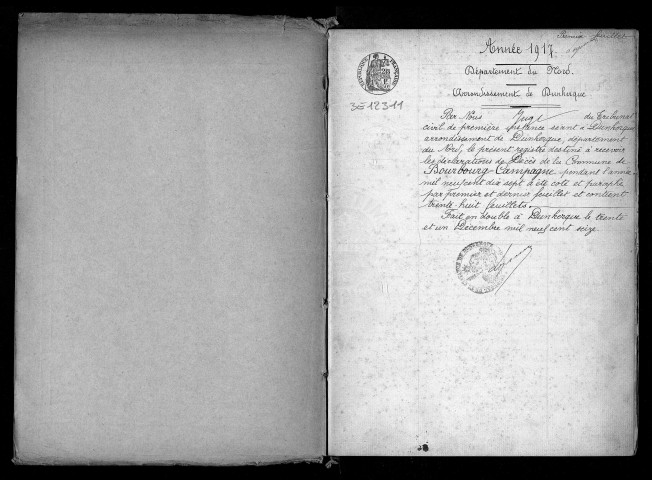 Premier feuillet
Année 1917
Département du Nord.
Arrondissement de Dunkerque
RÉPUBLIQUE FRANÇAISE
3E12311
Par Nous Juge du Tribunal
civil de première instance séant à Dunkerque
arrondissement de Dunkerque, département
du Nord, le présent registre destiné à recevoir
les déclarations de Décès de la Commune de
Bourbourg-Campagne pendant l'année
mil neuf cent dix sept a été coté et paraphé
par premier et dernier feuillet et contient
trente huit feuillets.
Fait en double à Dunkerque le trente
et un Décembre mil neuf cent seize